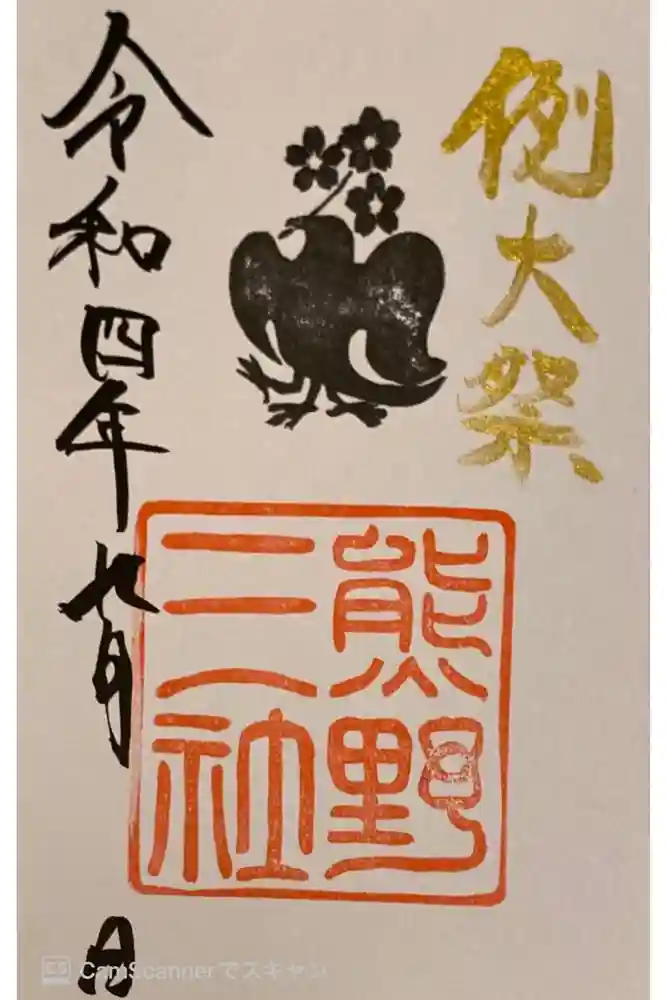 例大祭
熊野
三社
令和四年七月　日
CS CamScannerでスキャン